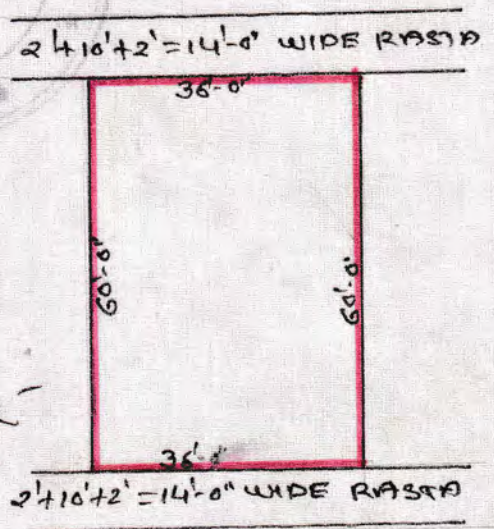 2'+10'+2'=14'-0" WIDE RASTA
36'-0"
60'-0"
60'-0"
36'-0"
2'+10'+2'=14'-0" WIDE RASTA